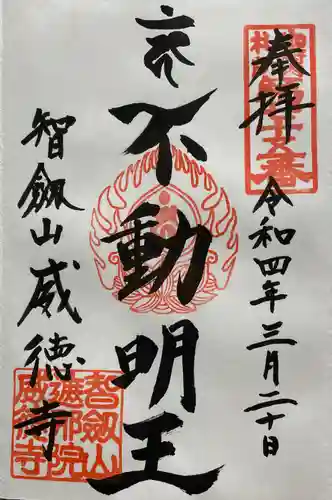 奉拝
令和四年三月二十日
不動明王
智剱山威徳寺
智剱山
遮那院
威徳寺